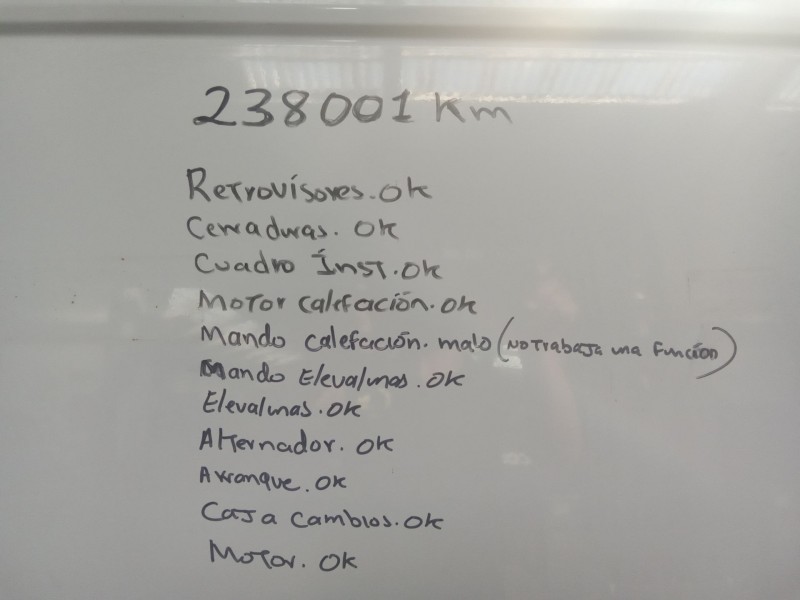 238001 Km
Retrovisores. ok
Cerraduras. ok
Cuadro Inst. ok
Motor calefación. ok
Mando calefación. malo (no trabaja una función)
Mando Elevalunas. ok
Elevalunas. ok
Alternador. ok
Arranque. ok
Caja cambios. ok
Motor. ok